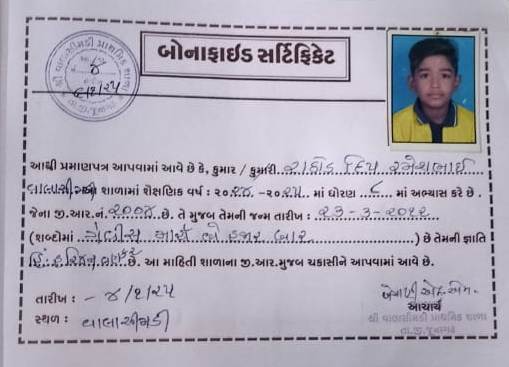 શ્રી વાલાસીમડી પ્રાથમિક શાળા
તા.જી.જૂનાગઢ
બોનાફાઈડ સર્ટિફિકેટ
આથી પ્રમાણપત્ર આપવામાં આવે છે કે, કુમાર / કુમારી રાઠોડ દિપ રમેશભાઈ
વાલાસીમડી શાળામાં શૈક્ષણિક વર્ષ : ૨૦૨૪ -૨૦૨૫ માં ધોરણ ૮ માં અભ્યાસ કરે છે .
જેના જી.આર.નં. ૨૦૦૪ છે. તે મુજબ તેમની જન્મ તારીખ : ૨૩-૩-૨૦૧૨
(શબ્દોમાં ત્રેવીસ માર્ચ બે હજાર બાર ) છે તેમની જ્ઞાતિ
હિં. છે. આ માહિતી શાળાના જી.આર.મુજબ ચકાસીને આપવામાં આવે છે.
તારીખ : - ૪/૧/૨૫
સ્થળ : વાલાસીમડી
આચાર્ય
શ્રી વાલાસીમડી પ્રાથમિક શાળા
તા.જી.જૂનાગઢ